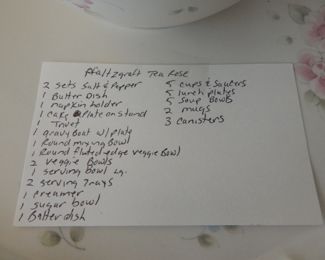 Pfaltzgraft Tea Rose
2 sets Salt & Pepper
1 Butter Dish
1 napkin holder
1 Cake Plate on stand
1 Trivet
1 gravy Boat w/ plate
1 Round mixing Bowl
1 Round fluted edge Veggie Bowl
2 Veggie Bowls
1 serving bowl Lg.
2 serving Trays
1 creamer
1 sugar bowl
1 Butter dish
5 cups & saucers
5 lunch plates
5 soup Bowls
2 mugs
3 canisters